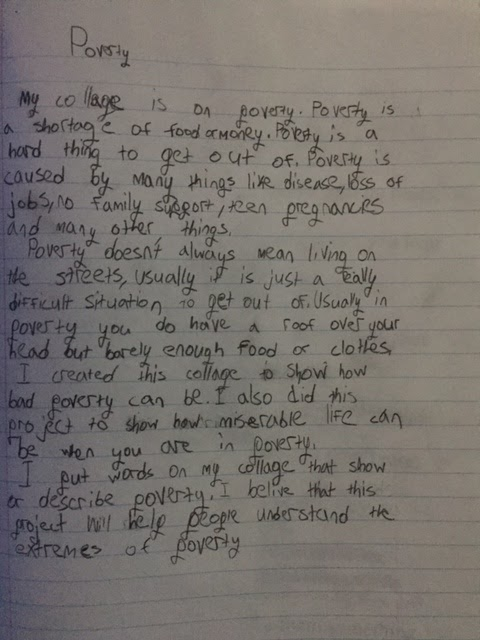 Poverty
My collage is on poverty. Poverty is
a shortage of food or money. Poverty is a
hard thing to get out of. Poverty is
caused by many things like disease, loss of
jobs, no family support, teen pregnancies
and many other things.
Poverty doesn't always mean living on
the streets, usually it is just a really
difficult situation to get out of. Usually in
poverty you do have a roof over your
head but barely enough food or clothes.
I created this collage to show how
bad poverty can be. I also did this
project to show how miserable life can
be when you are in poverty.
I put words on my collage that show
or describe poverty. I belive that this
project will help people understand the
extremes of poverty